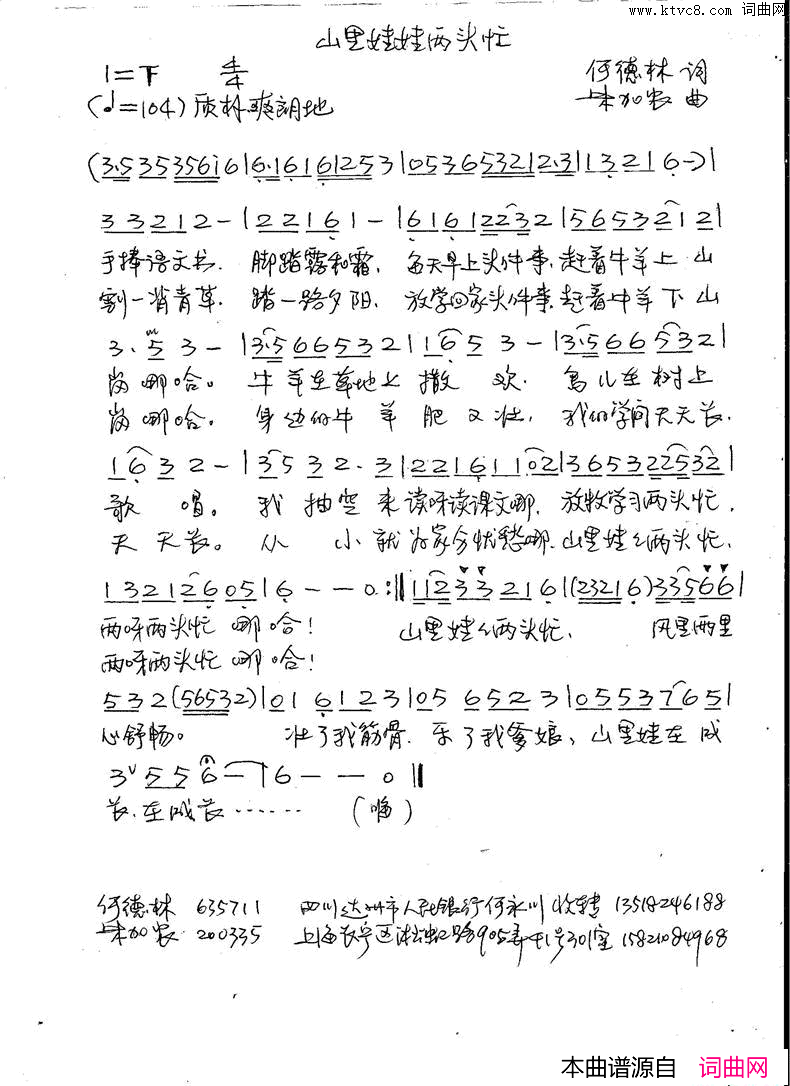 www.ktvc8.com 词曲网
山里娃娃两头忙
1=F 4/4 何德林 词
(♩=104) 质朴爽朗地 朱加农 曲
(3·535356i6|6·16161253|0536532 12·3|13216-)|
33212-|22161-|616122 32|5653212|
手捧语文书. 脚踏露和霜. 每天早上头件事.赶着牛羊上 山
割一背青草. 踏一路夕阳. 放学回家头件事.赶着牛羊下 山
3·53-|3·566532|1653-|3·566532|
岗哪哈。 牛羊在草地上 撒 欢. 鸟儿在树上
岗哪哈。 身边的牛 羊 肥 又壮. 我的学问天天长.
1632-|3532·3|22161102|365322532|
歌 唱。 我 抽空 来读呀读课文哪. 放牧学习两头忙.
天 天长。 从 小就为家分忧愁哪.山里娃娃两头忙.
13212605|6--0:||112332 16|(23216)33566|
两呀两头忙 哪哈! 山里娃娃两头忙. 风里雨里
两呀两头忙 哪哈!
532(56532)|016123|056523|0553765|
心舒畅。 壮了我筋骨. 乐了我爹娘、山里娃在成
3 556-|6--0||
长.在成长…… (嗨)
何德林 635711 四川达州市人民银行何永川 收转 13518246188
朱加农 200335 上海长宁区淞虹路905弄 号301室 15821084968
本曲谱源自 词曲网